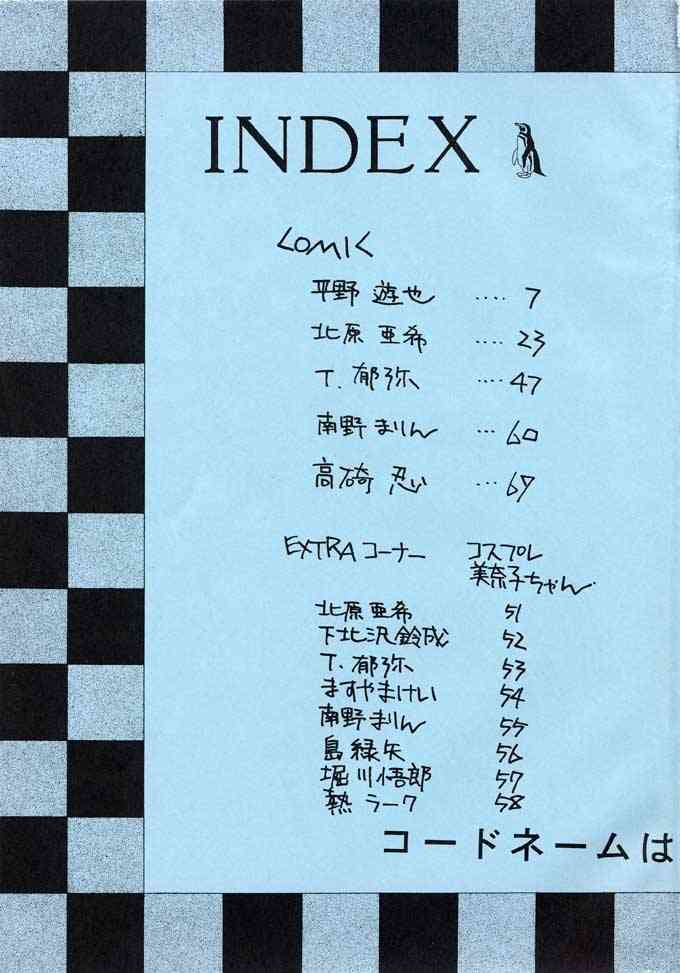 INDEX
COMIC
平野 遊也 .... 7
北原 亜希 .... 23
T. 郁弥 .... 47
南野 まりん ... 60
高碕 忍 ... 69
EXTRAコーナー コスプレ
美奈子ちゃん
北原 亜希 51
下北沢 鈴成 52
T. 郁弥 53
ますやまけい 54
南野 まりん 55
島 緑矢 56
堀川 悟郎 57
熱 ラーク 58
コードネームは